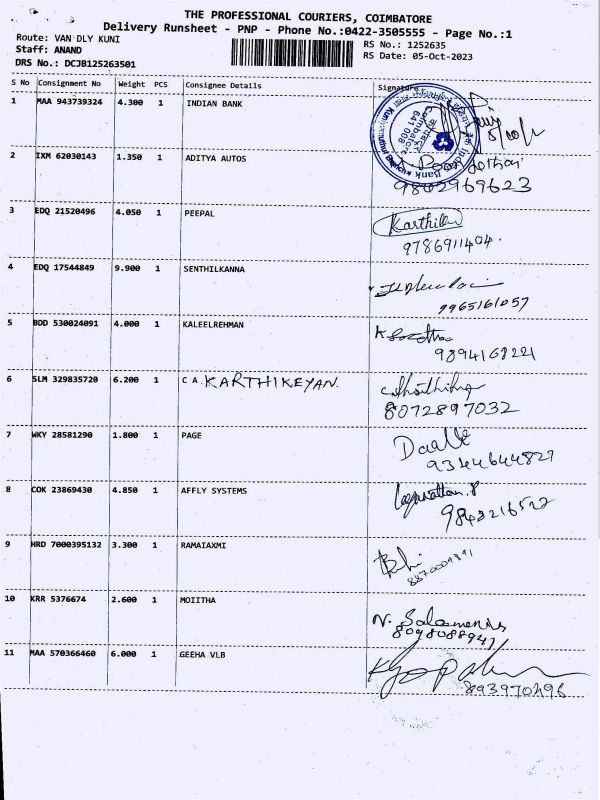 THE PROFESSIONAL COURIERS, COIMBATORE
Delivery Runsheet - PNP - Phone No.:0422-3505555 - Page No.:1
Route: VAN DLY KUNI
Staff: ANAND
DRS No.: DCJB125263501
RS No.: 1252635
RS Date: 05-Oct-2023
S No Consignment No Weight PCS Consignee Details Signature
1 MAA 943739324 4.300 1 INDIAN BANK
Indian Bank
Coimbatore
641 008
2 IXM 62030143 1.350 1 ADITYA AUTOS
9802969623
3 EDQ 21520496 4.050 1 PEEPAL Karthik
9786911404.
4 EDQ 17544849 9.900 1 SENTHILKANNA
9965161057
5 BDD 530024091 4.000 1 KALEELREHMAN
9894168221
6 SLM 329835720 6.200 1 C A. KARTHIKEYAN.
8072897032
7 WKY 28581290 1.800 1 PAGE
9344644827
8 COK 23869430 4.850 1 AFFLY SYSTEMS
9843216527
9 HRD 7000395132 3.300 1 RAMAIAXMI
10 KRR 5376674 2.600 1 MOIITHA N.
8098088947
11 MAA 570366460 6.000 1 GEEHA VLB